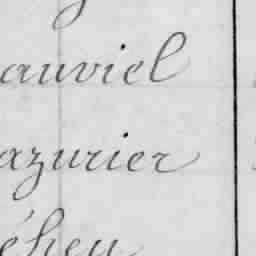 auviel
azurier
éheu